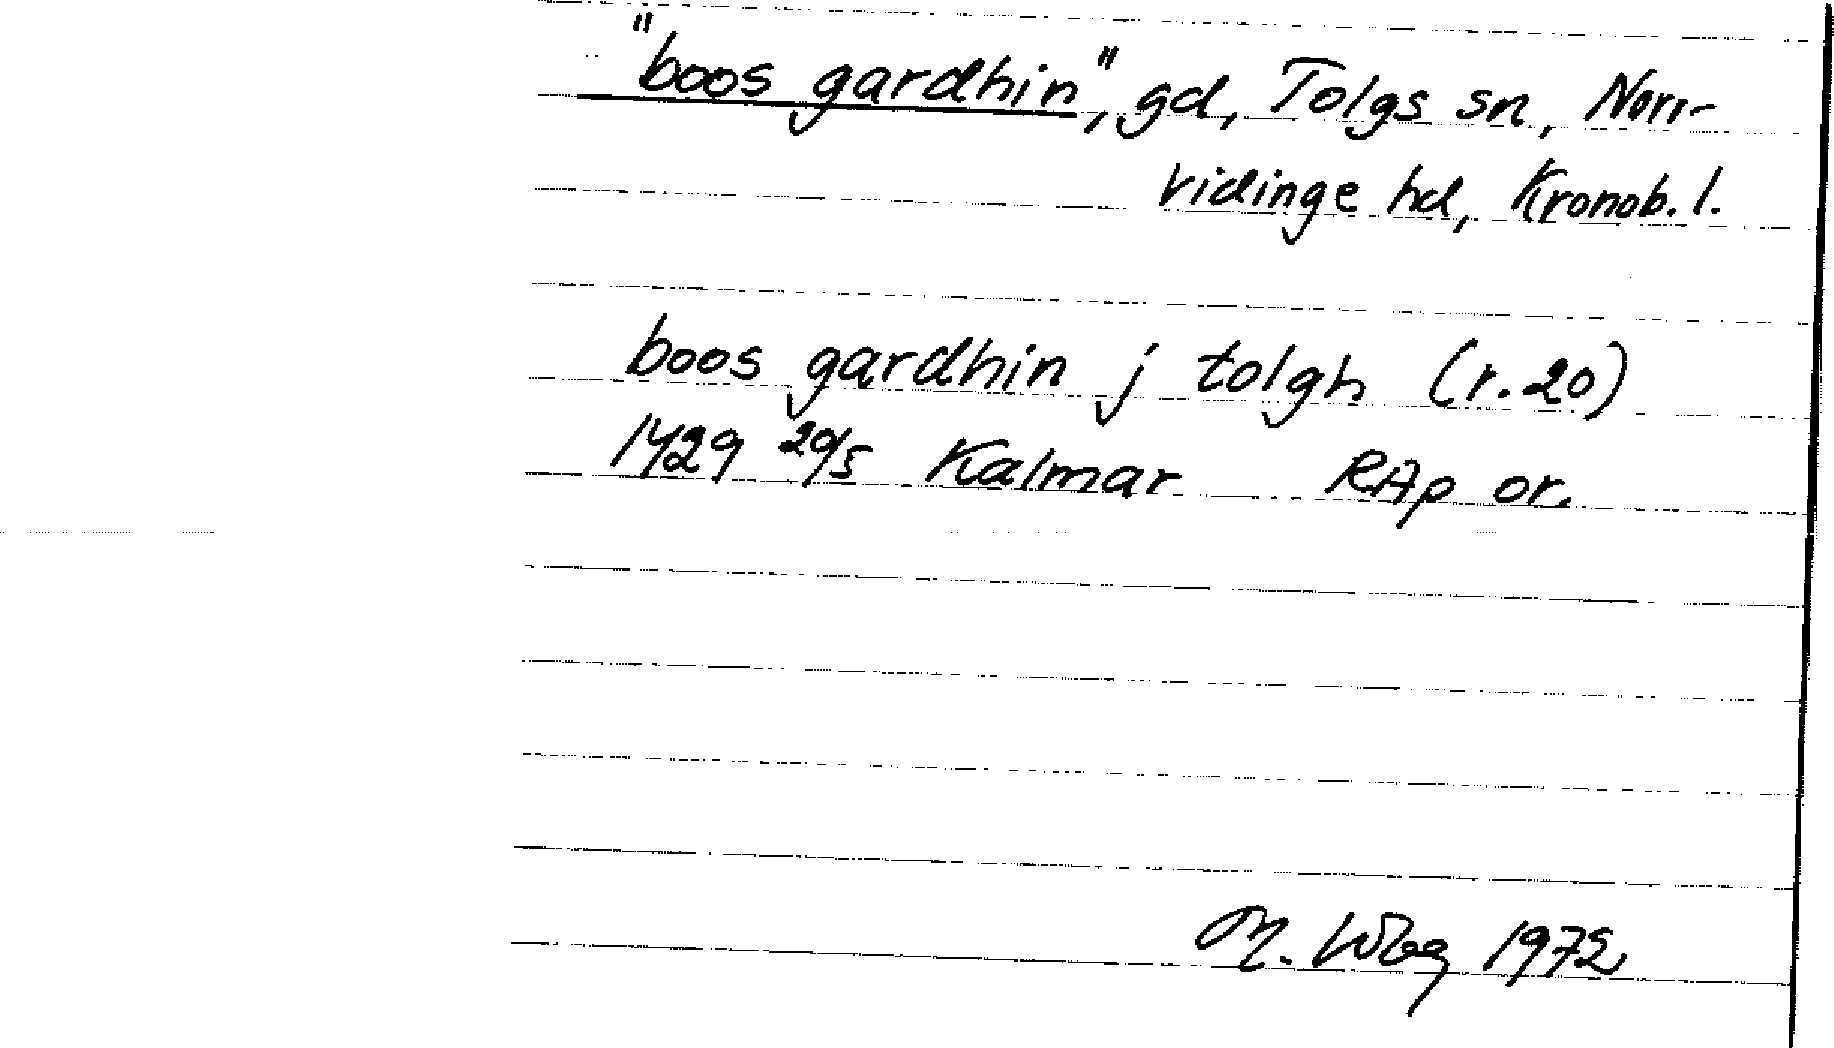 "boos gardhin", gd, Tolgs sn, Norr-
vidinge hd, Kronob. l.
boos gardhin j tolgh (r. 20)
1429 20/5 Kalmar RAp or.
M. 1972